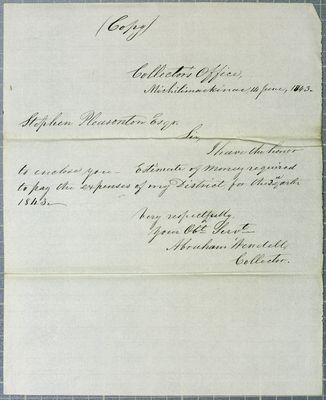 (Copy)
Collector's Office,
Michilimackinac 14 June, 1843.
Stephen Pleasonton Esqr.
Sir,
I have the honor
to enclose you – Estimate of Money required
to pay the expenses of my District for the 3d qartr
1843.–
Very respectfully
Your Obt. Servt
Abraham Wendell
Collector.